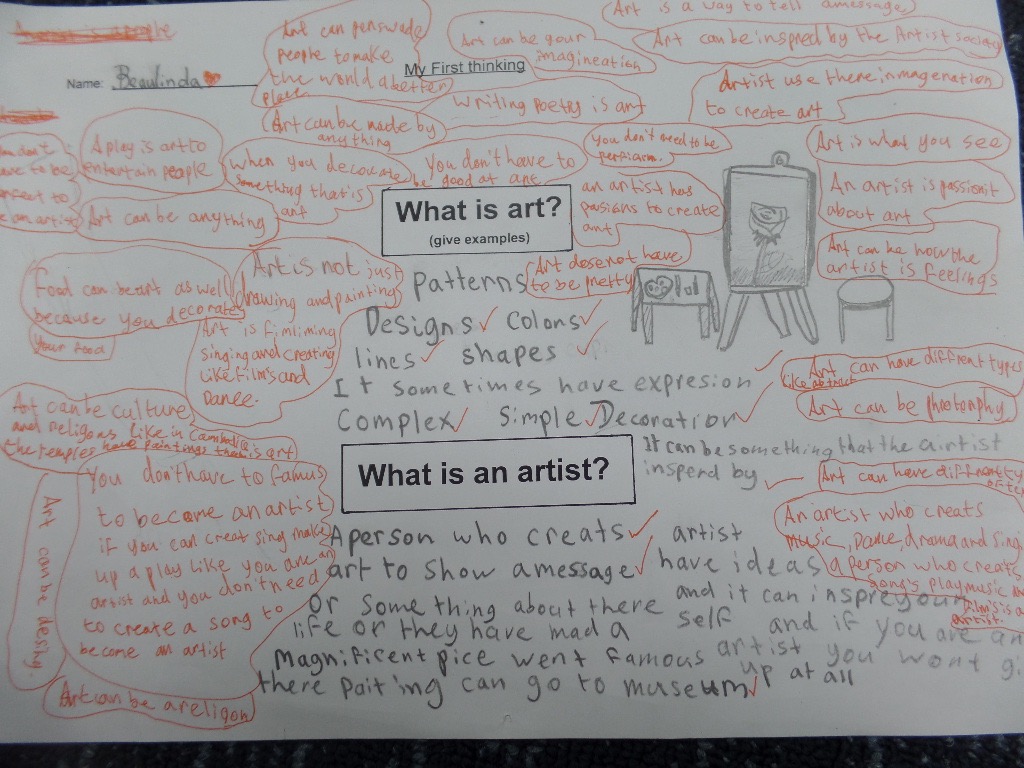 Name: Beaulinda
My First thinking
Art can perswade
people to make
the world a better
place
Art can be your
imagineation
Art is a way to tell a message
Art can be inspred by the Artist society
Artist use there inmagenation
to create art
Writing poetry is art
Art can be made by
anything
A play is art to
entertain people
when you decorate
something that is
art
You don't have to
be good at art
You don't need to be
perfiacm.
Art is what you see
An artist is passionit
about art
Art can be how the
artist is feelings
an artist has
pasions to create
art
Art can be anything
What is art?
(give examples)
Art dose not have
to be pretty
Food can be art as well
because you decorate
your food
Art is not just
drawing and painting
Art is fimliming
singing and creating
Like film's and
Dance.
Patterns
Designs Colors
lines shapes
It sometimes have expresion
Complex Simple Decoration
It can be something that the airtist
insperd by
Art can have diffrent types
like abtract
Art can be photerphy
Art can be culture
and religons like in Cambodia
the temples have paintings that is art
What is an artist?
You don't have to famus
to become an artist
if you can creat sing make
up a play like you are an
artist and you don't need
to create a song to
become an artist
Art can be desing
Art can be a religon
A person who creats
art to show a message
or something about there
life or they have mad a
magnificent pice went famous
there paiting can go to museum
artist
have ideas
and it can inspre your
self and if you are an
artist you wont gi
up at all
An artist who creats
music, dance, drama and sing
a person who creats
song's play music
film's is a
artist.